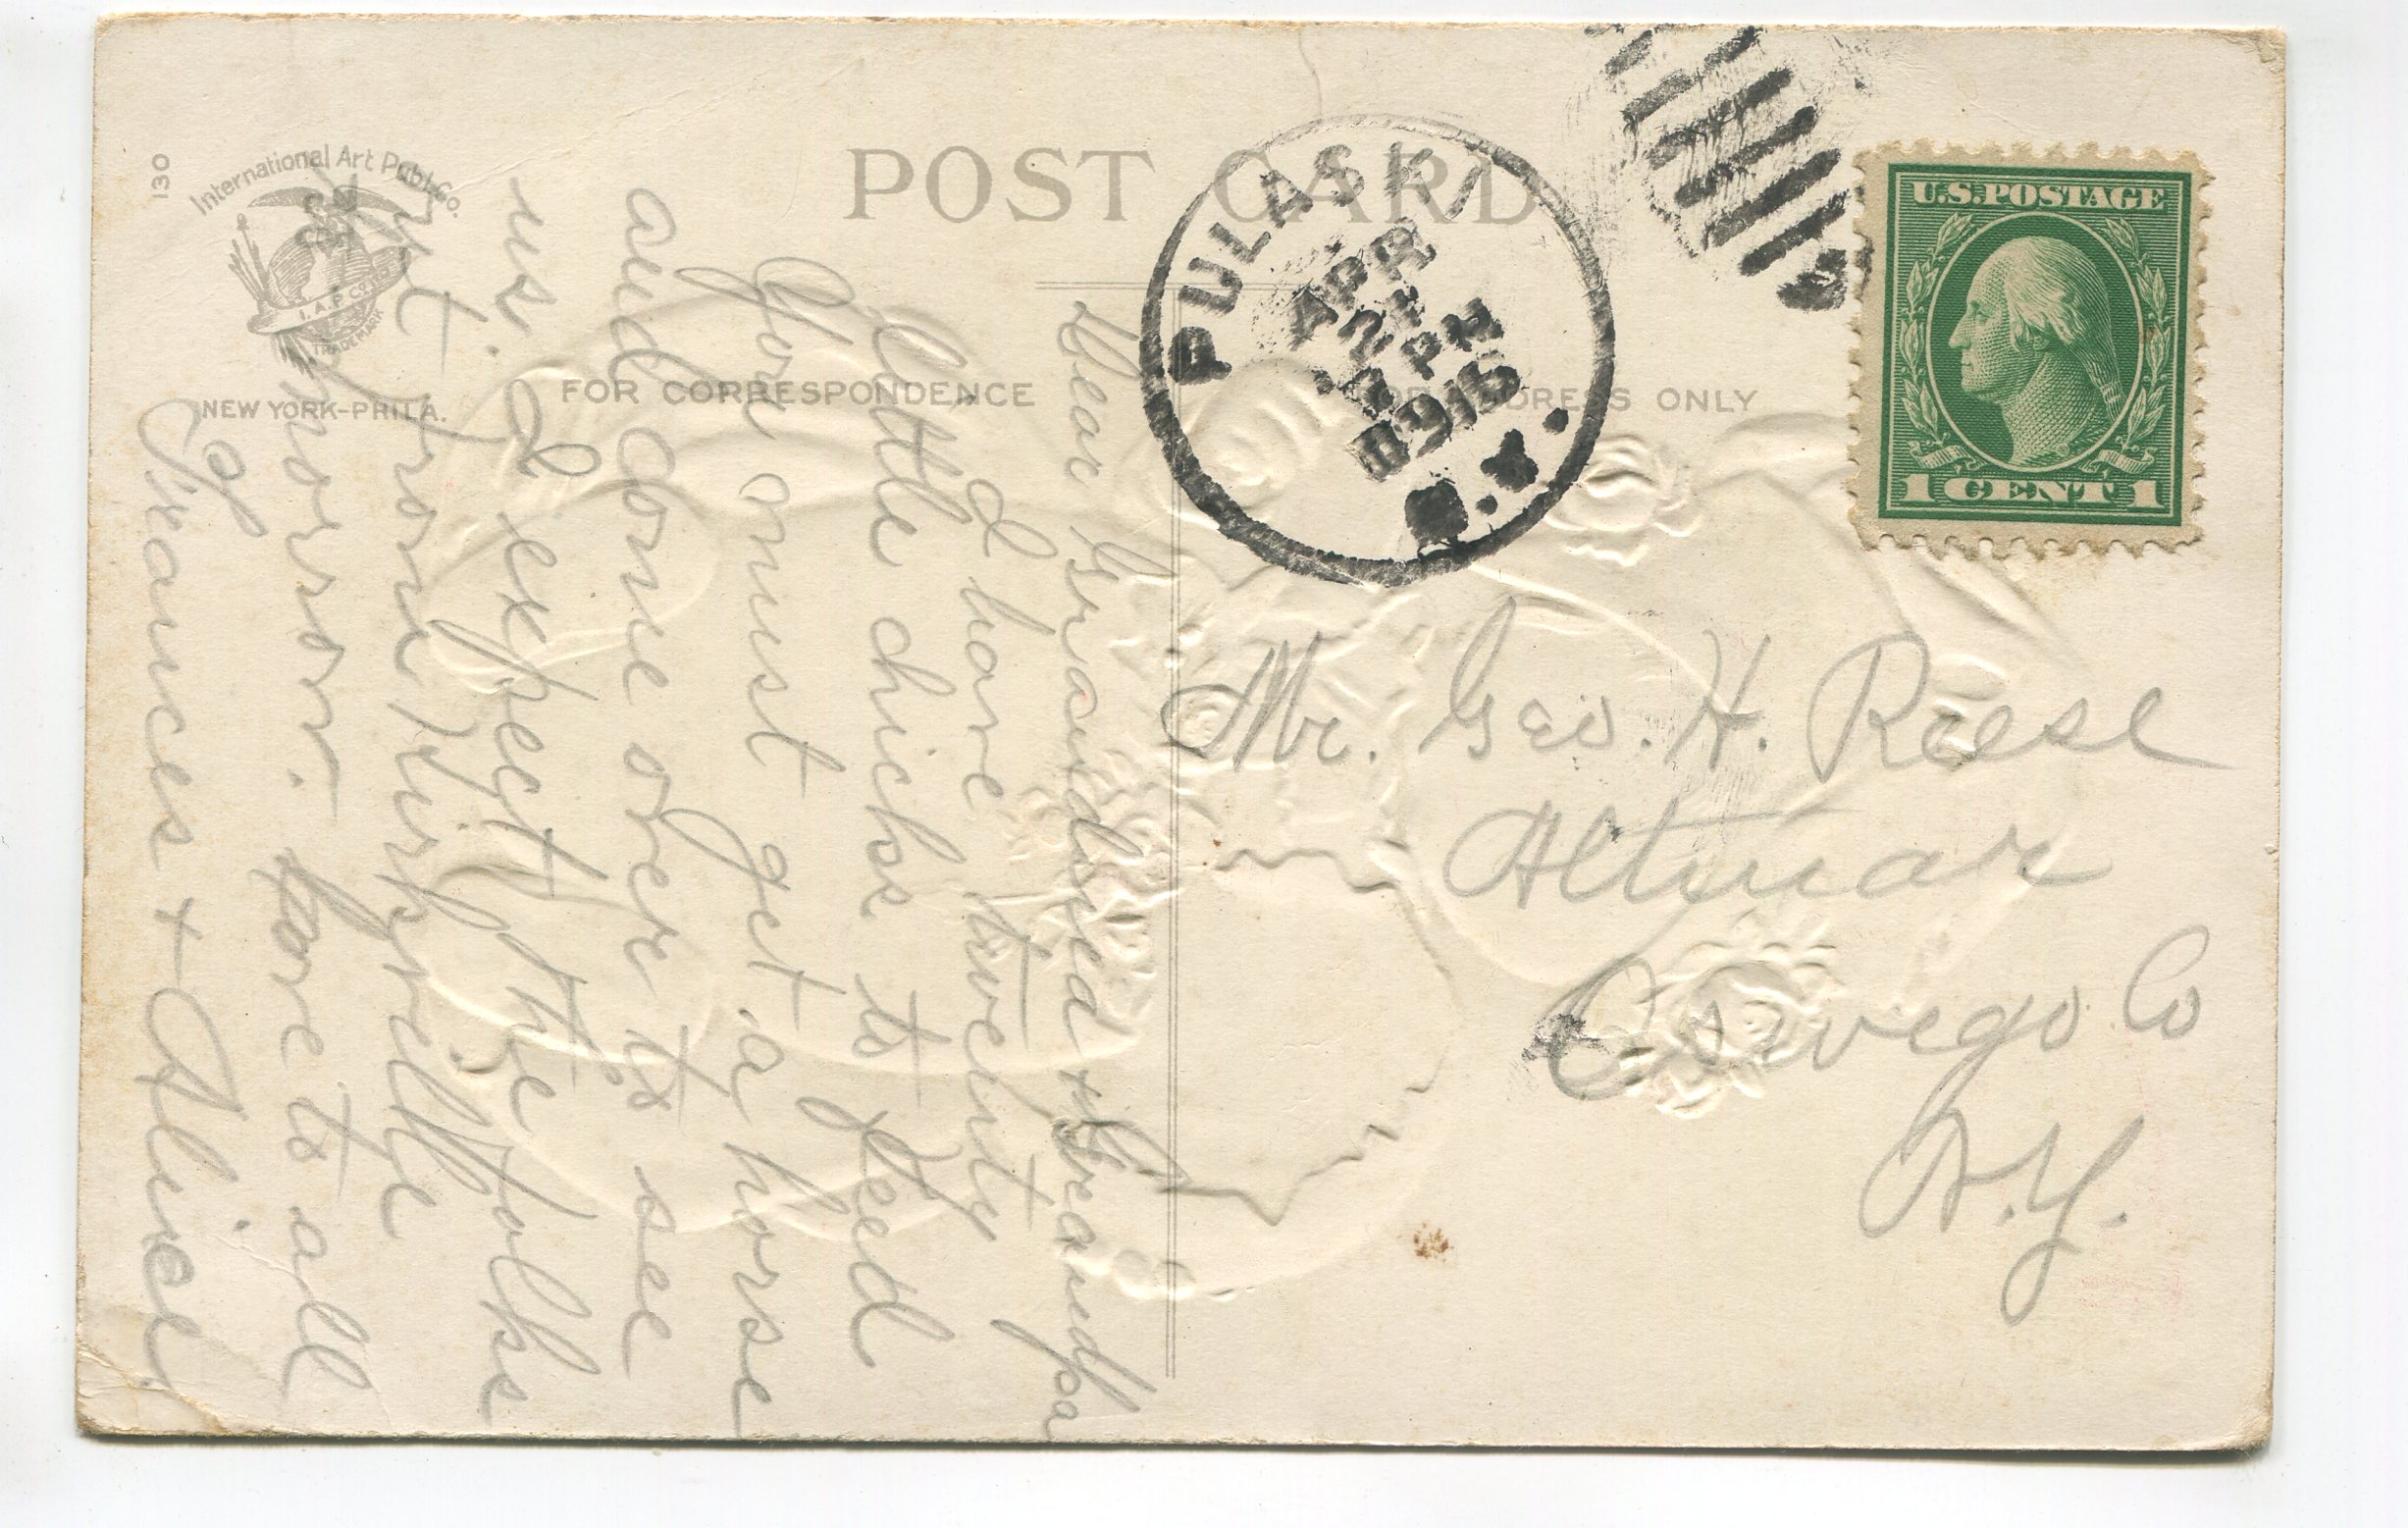 130
International Art Publ. Co.
I.A.P. Co.
TRADEMARK
NEW YORK-PHILA.
POST CARD
FOR CORRESPONDENCE
ADDRESS ONLY
PULASKI
APR
24
7 PM
1916
N.Y.
U.S. POSTAGE
1 CENT 1
Mr. Geo. H. Reese
Altmar
Oswego Co
N.Y.
Dear Grandma + Grandpa
I have twenty
little chicks to feed
You must get a horse
and come over to see
us. I expect the folks
up from Kirkville
to-morrow. Love to all
Frances + Alice